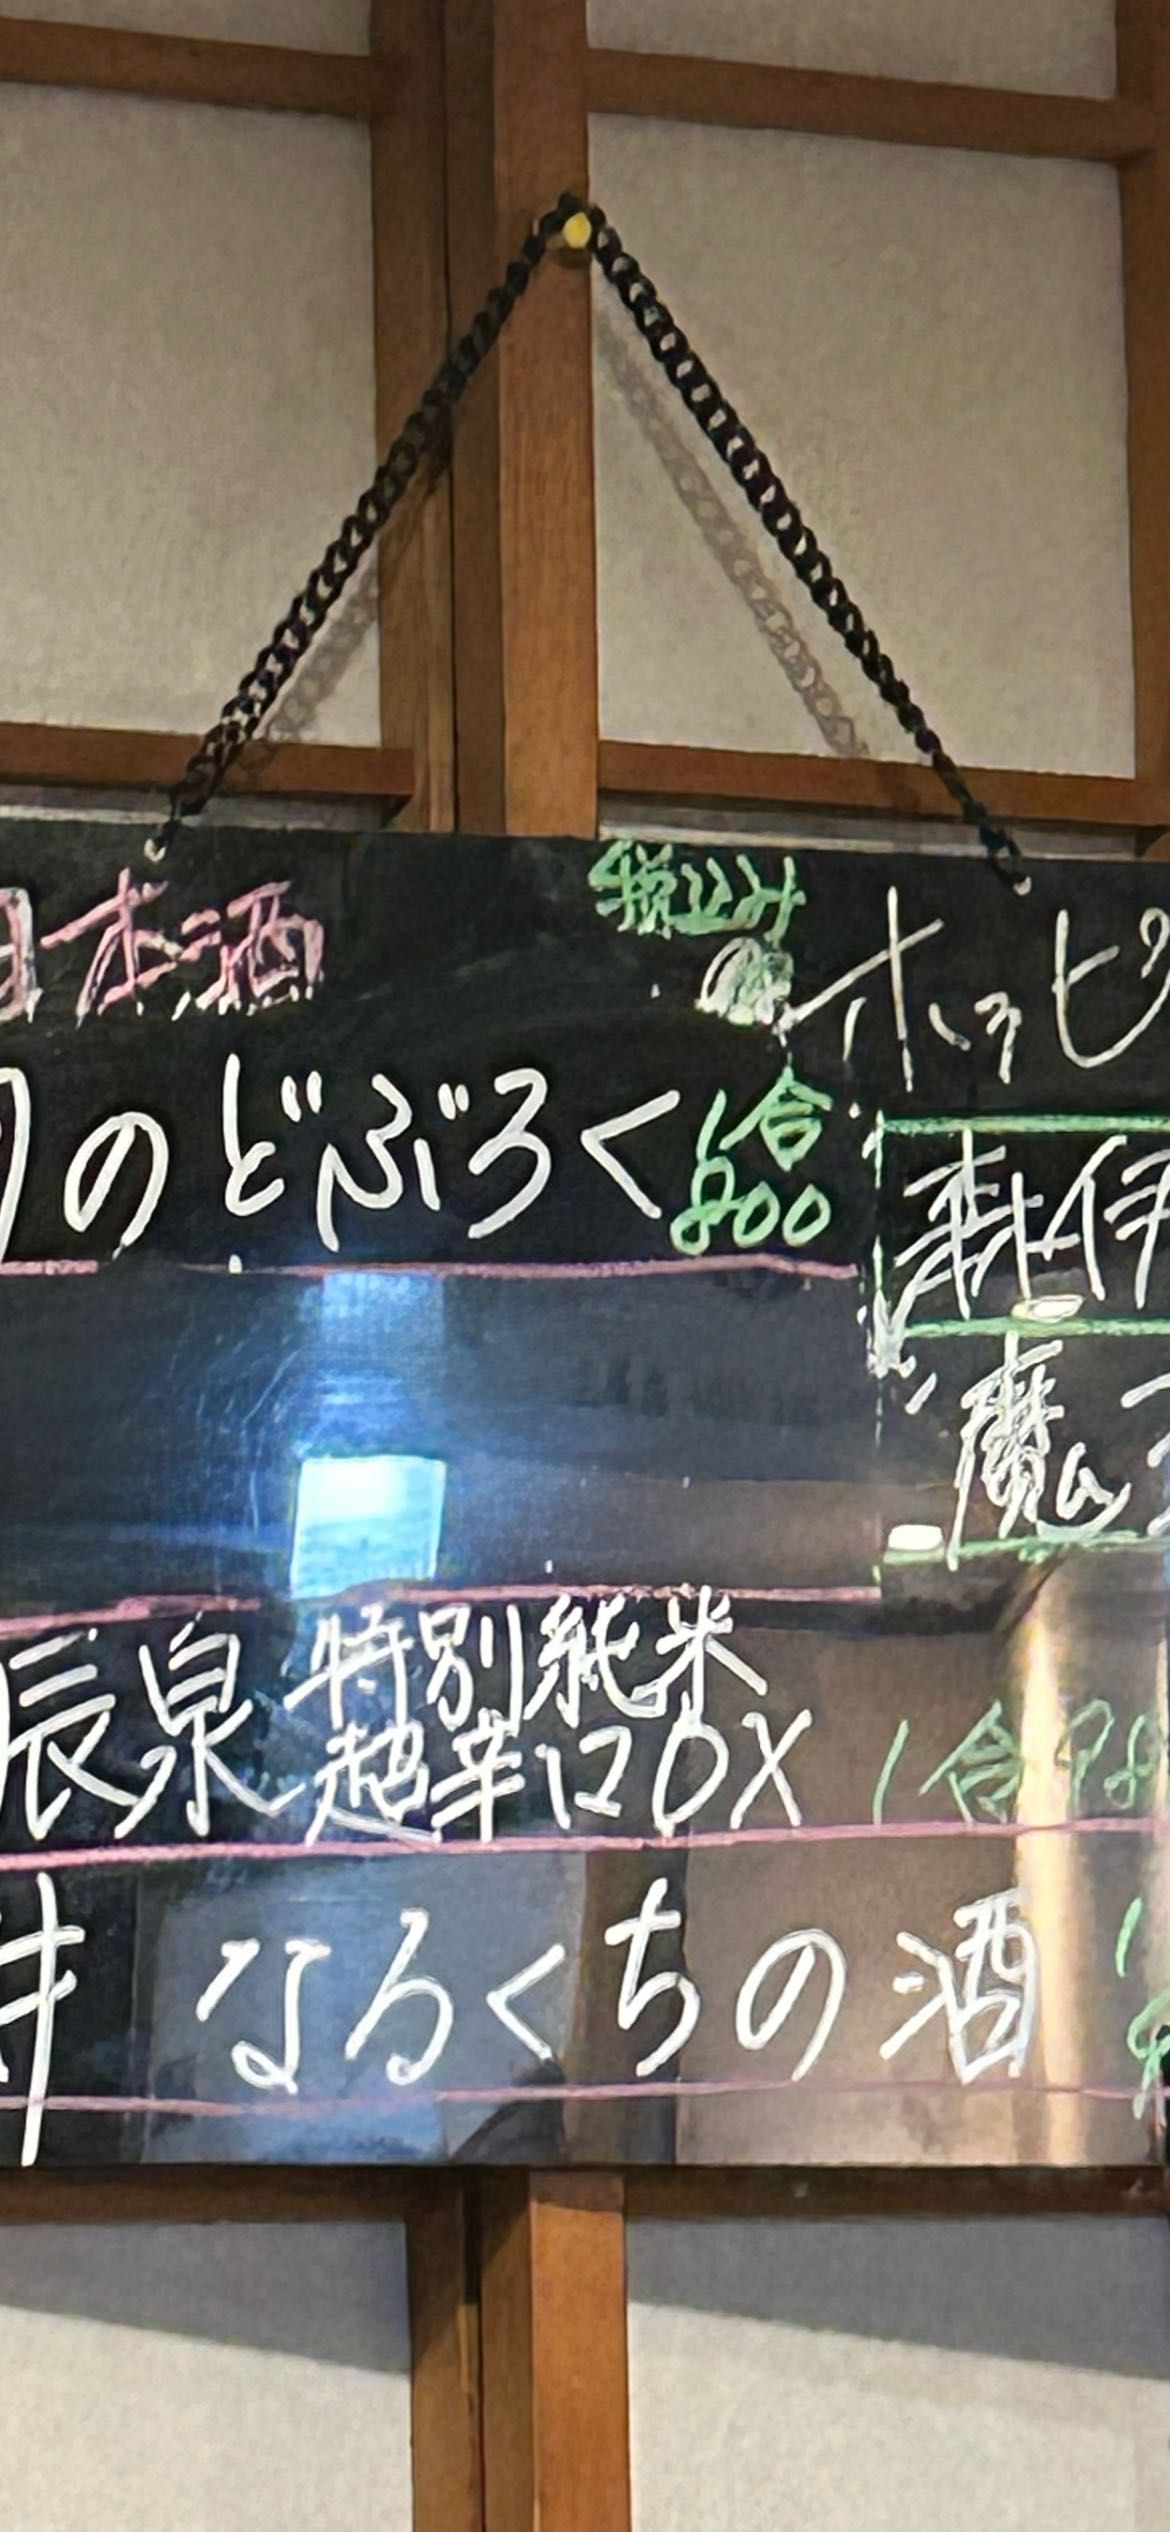 日本酒
税込み
ホッピ
のどぶろく 1合
800
森伊
魔
辰泉 特別純米
超辛口DX 1合
井 なるくちの酒